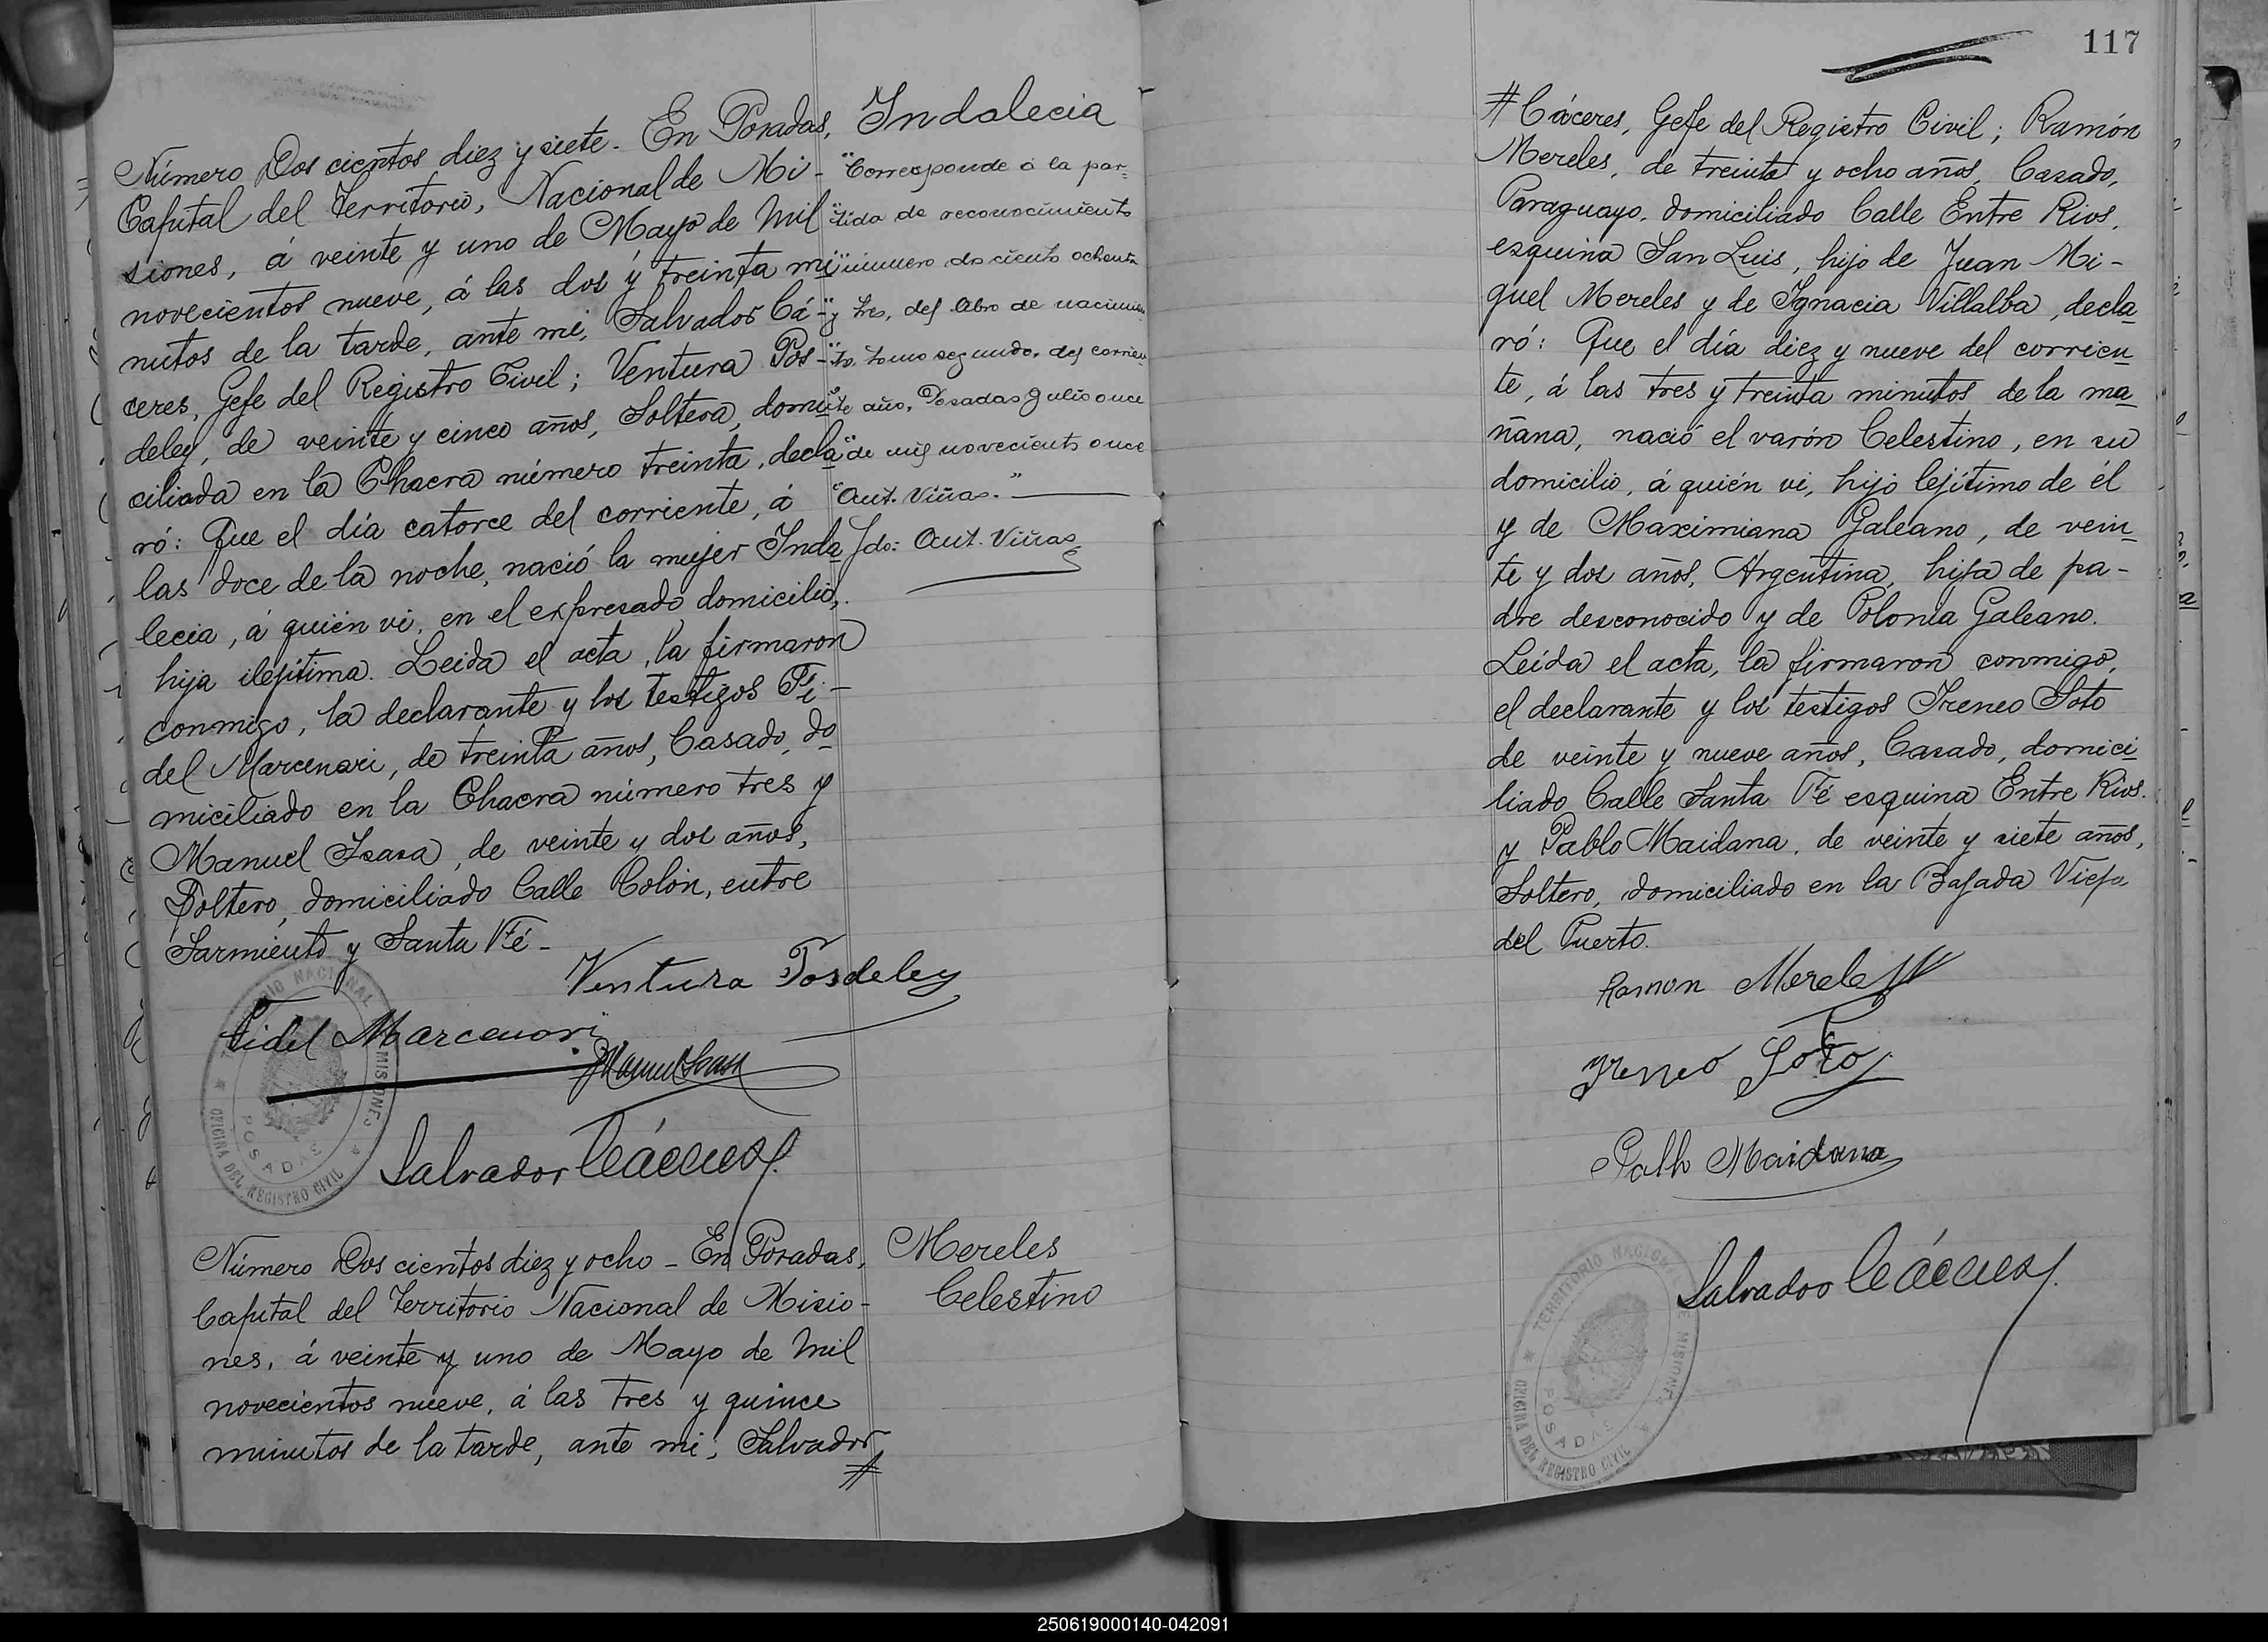 Número Dos cientos diez y siete. En Posadas,
Capital del Territorio, Nacional de Mi-
siones, á veinte y uno de Mayo de Mil
novecientos nueve, á las dos y treinta mi
nutos de la tarde, ante mi, Salvador Cá-
ceres, Gefe del Registro Civil; Ventura Pos-
deley, de veinte y cinco años, Soltera, domi
ciliada en la Chacra número treinta, decla
ró: Que el día catorce del corriente, á
las doce de la noche, nació la mujer Inda
lecia, á quién vi, en el expresado domicilio,
hija ilejítima. Leida el acta, la firmaron
conmigo, la declarante y los testigos Fi-
del Marcenari, de treinta años, Casado, do
miciliado en la Chacra número tres y
Manuel Isasa, de veinte y dos años,
Soltero, domiciliado Calle Colón, entre
Sarmiento y Santa Fé-
Indalecia
"Corresponde á la par=
"tida de reconocimiento
"número doscientos ochenta
"y tres, del libro de nacimien
"to, tomo segundo, del corrien
"te año, Posadas Julio once
"de mil novecientos once
"Ant. Viñas."
fdo: Ant. Viñas
Ventura Posdeley
Fidel Marcenari
Manuel Isasa
Salvador Cáceres
TERRITORIO NACIONAL DE MISIONES
POSADAS
OFICINA DEL REGISTRO CIVIL
Número Dos cientos diez y ocho - En Posadas,
Capital del Territorio Nacional de Misio-
nes, á veinte y uno de Mayo de Mil
novecientos nueve, á las tres y quince
minutos de la tarde, ante mi, Salvador
#
Mereles
Celestino
117
# Cáceres, Gefe del Registro Civil; Ramón
Mereles, de treinta y ocho años, Casado,
Paraguayo, domiciliado Calle Entre Rios,
esquina San Luis, hijo de Juan Mi-
guel Mereles y de Ignacia Villalba, decla
ró: Que el día diez y nueve del corrien
te, á las tres y treinta minutos de la ma
ñana, nació el varón Celestino, en su
domicilio, á quién vi, hijo lejítimo de él
y de Maximiana Galeano, de vein
te y dos años, Argentina, hija de pa-
dre desconocido y de Polonia Galeano.
Leída el acta, la firmaron conmigo,
el declarante y los testigos Ireneo Soto
de veinte y nueve años, Casado, domici
liado Calle Santa Fé esquina Entre Rios.
y Pablo Maidana, de veinte y siete años,
Soltero, domiciliado en la Bajada Vieja
del Puerto.
Ramon Mereles
Ireneo Soto
Pablo Maidana
Salvador Cáceres
TERRITORIO NACIONAL DE MISIONES
POSADAS
OFICINA DEL REGISTRO CIVIL
250619000140-042091